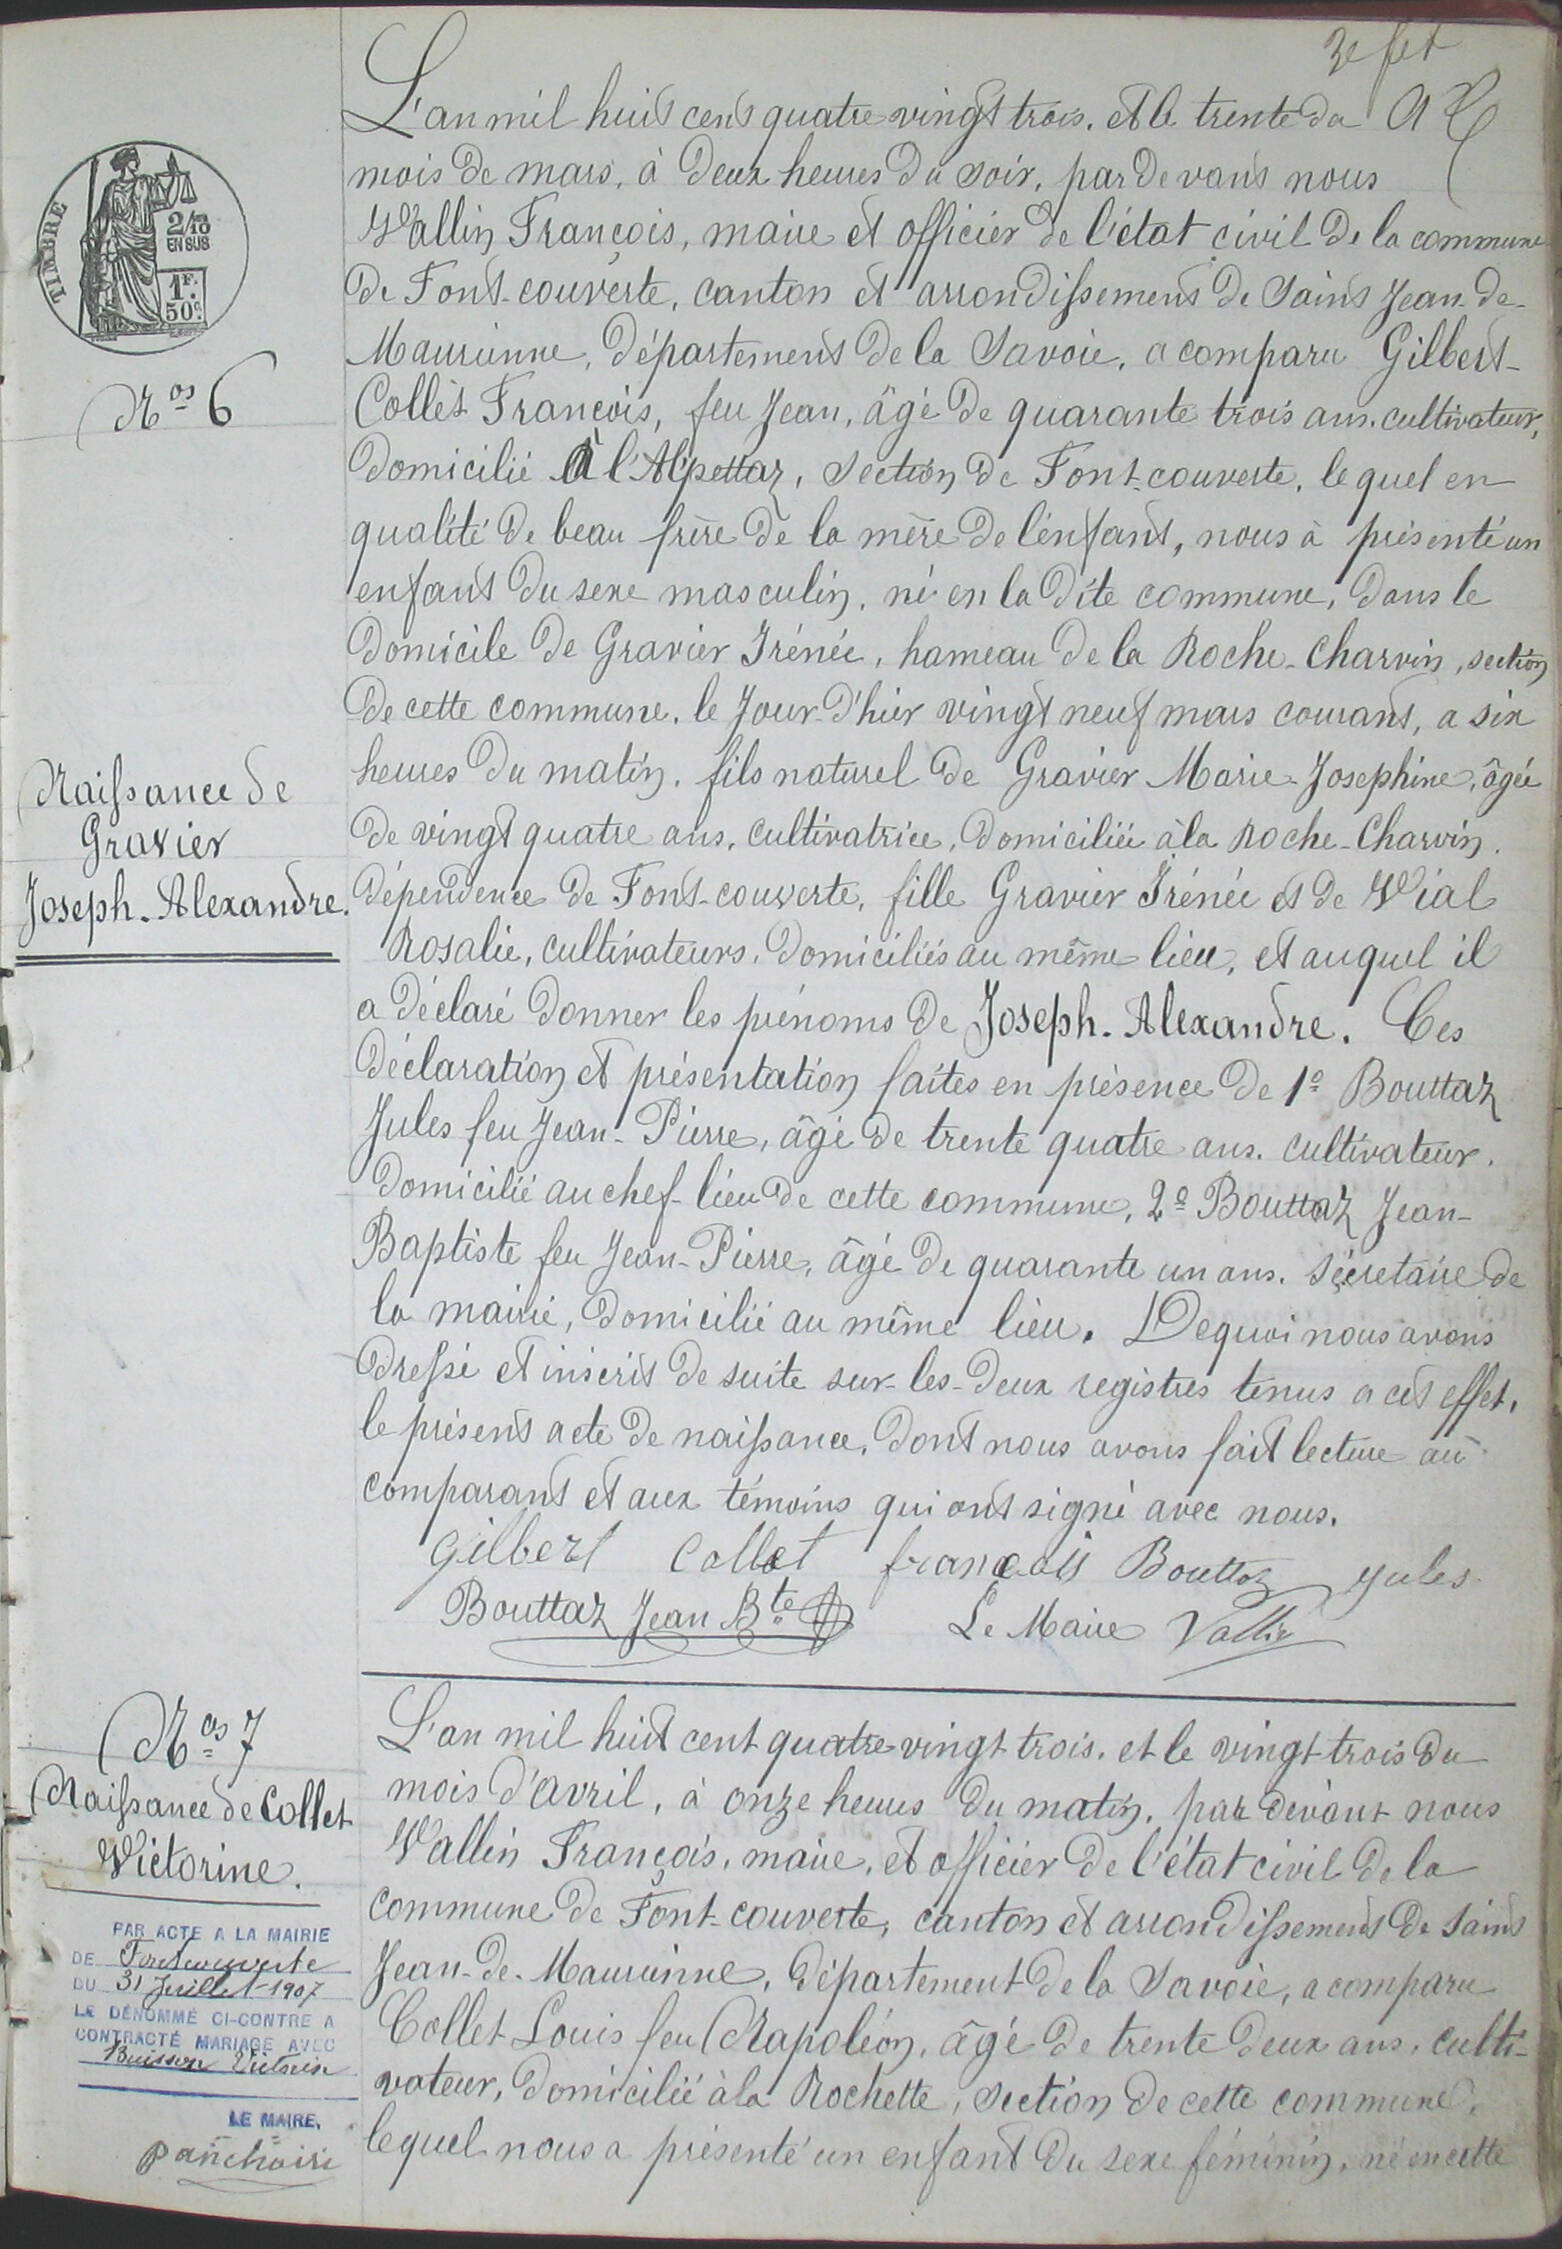 3e fet
L'an mil huit cent quatre vingt trois, et le trente du
mois de mars, à deux heures du soir, par devant nous
Vallin François, maire et officier de l'état civil de la commune
de Font-couverte, canton et arrondissement de Saint Jean-de-
Maurienne, département de la Savoie, a comparu Gilbert-
Collet François, feu Jean, âgé de quarante trois ans, cultivateur,
domicilié à l'Alpettaz, section de Font-couverte, lequel en
qualité de beau frère de la mère de l'enfant, nous à présenté un
enfant du sexe masculin, né en la dite commune, dans le
domicile de Gravier Irénée, hameau de la Roche-Charvin, section
de cette commune, le jour-d'hier vingt neuf mars courant, a six
heures du matin, fils naturel de Gravier Marie-Josephine, âgée
de vingt quatre ans, cultivatrice, domiciliée à la Roche-Charvin,
dépendence de Font-couverte, fille Gravier Irénée et de Vial
Rosalie, cultivateurs, domiciliés au même lieu, et auquel il
a déclaré donner les prénoms de Joseph-Alexandre. Ces
déclaration et présentation faites en présence de 1º Bouttaz
Jules feu Jean-Pierre, âgé de trente quatre ans, cultivateur,
domicilié au chef-lieu de cette commune, 2º Bouttaz Jean-
Baptiste feu Jean-Pierre, âgé de quarante un ans, sécretaire de
la mairie, domicilié au même lieu. De quoi nous avons
dressé et inscrit de suite sur-les-deux registres tenus a cet effet,
le présent acte de naissance, dont nous avons fait lecture au
comparant et aux témoins qui ont signé avec nous.
Gilbert Collet françois Bouttaz jules
Bouttaz Jean Bte Le Maire Vallin
TIMBRE
2/10
EN SUS
1F.
50c.
Nos 6
Naissance de
Gravier
Joseph-Alexandre.
L'an mil huit cent quatre vingt trois, et le vingt trois du
mois d'avril, à onze heures du matin, par devant nous
Vallin François, maire, et officier de l'état civil de la
commune de Font-couverte, canton et arrondissement de Saint
Jean-de-Maurienne, département de la Savoie, a comparu
Collet Louis feu Napoléon, âgé de trente deux ans, culti-
vateur, domicilié à la Rochette, section de cette commune,
lequel nous a présenté un enfant du sexe féminin, né en cette
Nos 7
Naissance de Collet
Victorine.
PAR ACTE A LA MAIRIE
DE Fontcouverte
DU 31 Juillet 1907
LE DÉNOMMÉ CI-CONTRE A
CONTRACTÉ MARIAGE AVEC
Buisson Victorin
LE MAIRE,